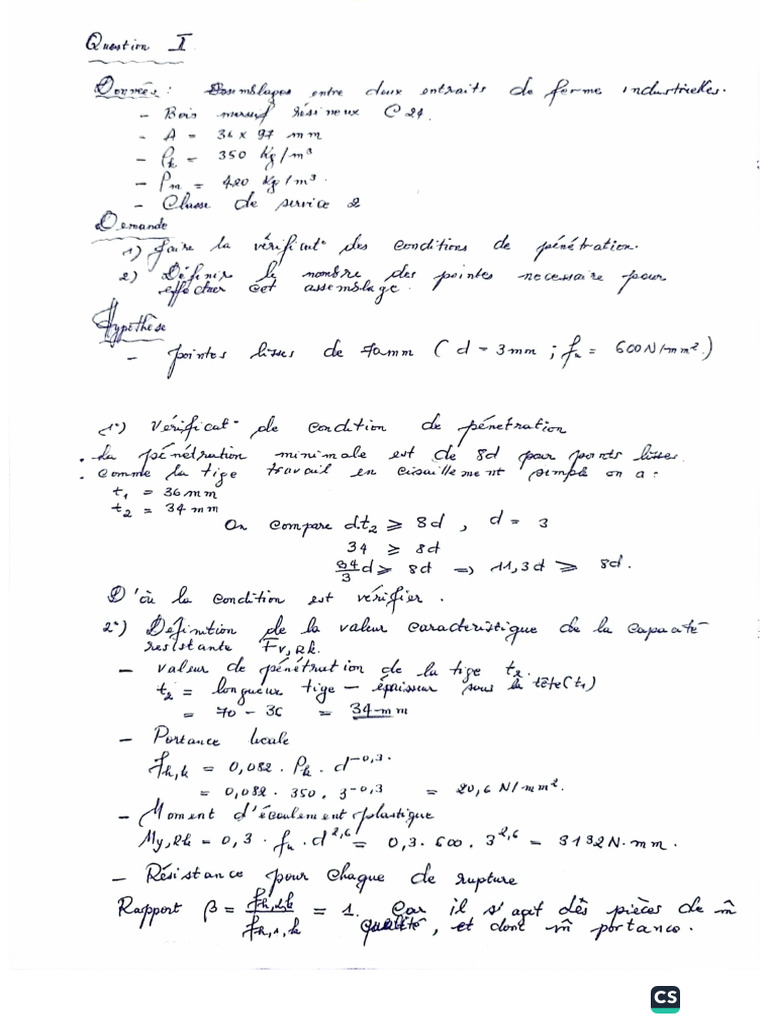 Question I
Données : Assemblages entre deux entraits de ferme industrielles.
- Bois massif résineux C24.
- A = 36 x 97 mm
- ρk = 350 Kg/m³
- ρm = 420 Kg/m³.
- Classe de service 2
Demande
1) faire la vérificat° des conditions de pénétration.
2) Définir le nombre des pointes necessaire pour
effectuer cet assemblage.
Hypothèse
- pointes lisses de 70mm (d = 3mm ; fu = 600N/mm².)
1°) Vérificat° de condition de pénetration
. La pénétration minimale est de 8d pour points lisses.
. Comme la tige travail en cisaillement simple on a :
t1 = 36 mm
t2 = 34 mm
On compare d.t2 ⩾ 8d , d = 3
34 ⩾ 8d
34/3 d ⩾ 8d => 11,3d ⩾ 8d.
D'où la condition est vérifier.
2°) Définition de la valeur caracteristique de la capacité
resistante Fv,Rk.
- valeur de pénétration de la tige t2.
t2 = longueur tige - épaisseur sous la tête(t1)
= 70 - 36 = 34 mm
- Portance locale
fh,k = 0,082 . ρk . d^-0,3.
= 0,082 . 350 . 3^-0,3 = 20,6 N/mm².
- Moment d'écoulement plastique
My,Rk = 0,3 . fu . d^2,6 = 0,3 . 600 . 3^2,6 = 3132 N.mm.
- Résistance pour chaque de rupture
Rapport β = fh,2,k / fh,1,k = 1. Car il s'agit dès pièces de m̂
qualité, et dont m̂ portance.
CS